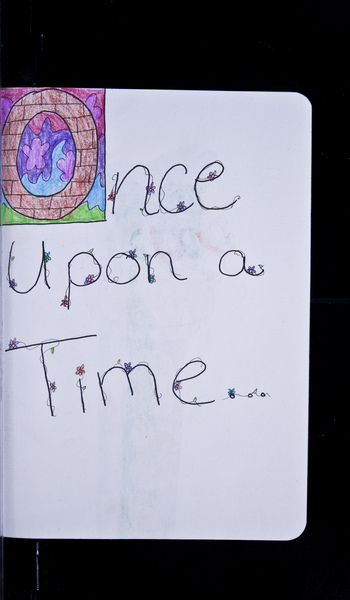 Once
Upon a
Time...